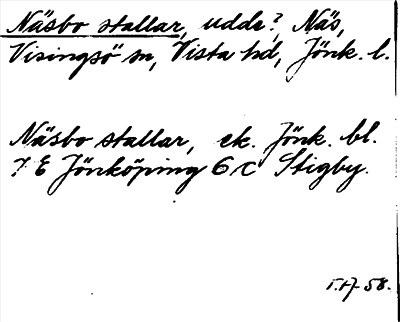 Näsbo stallar, udde? Näs,
Visingsö sn, Vista hd, Jönk. l.
Näsbo stallar, ek. Jönk. bl.
7 E Jönköping 6 c Stigby.
58.